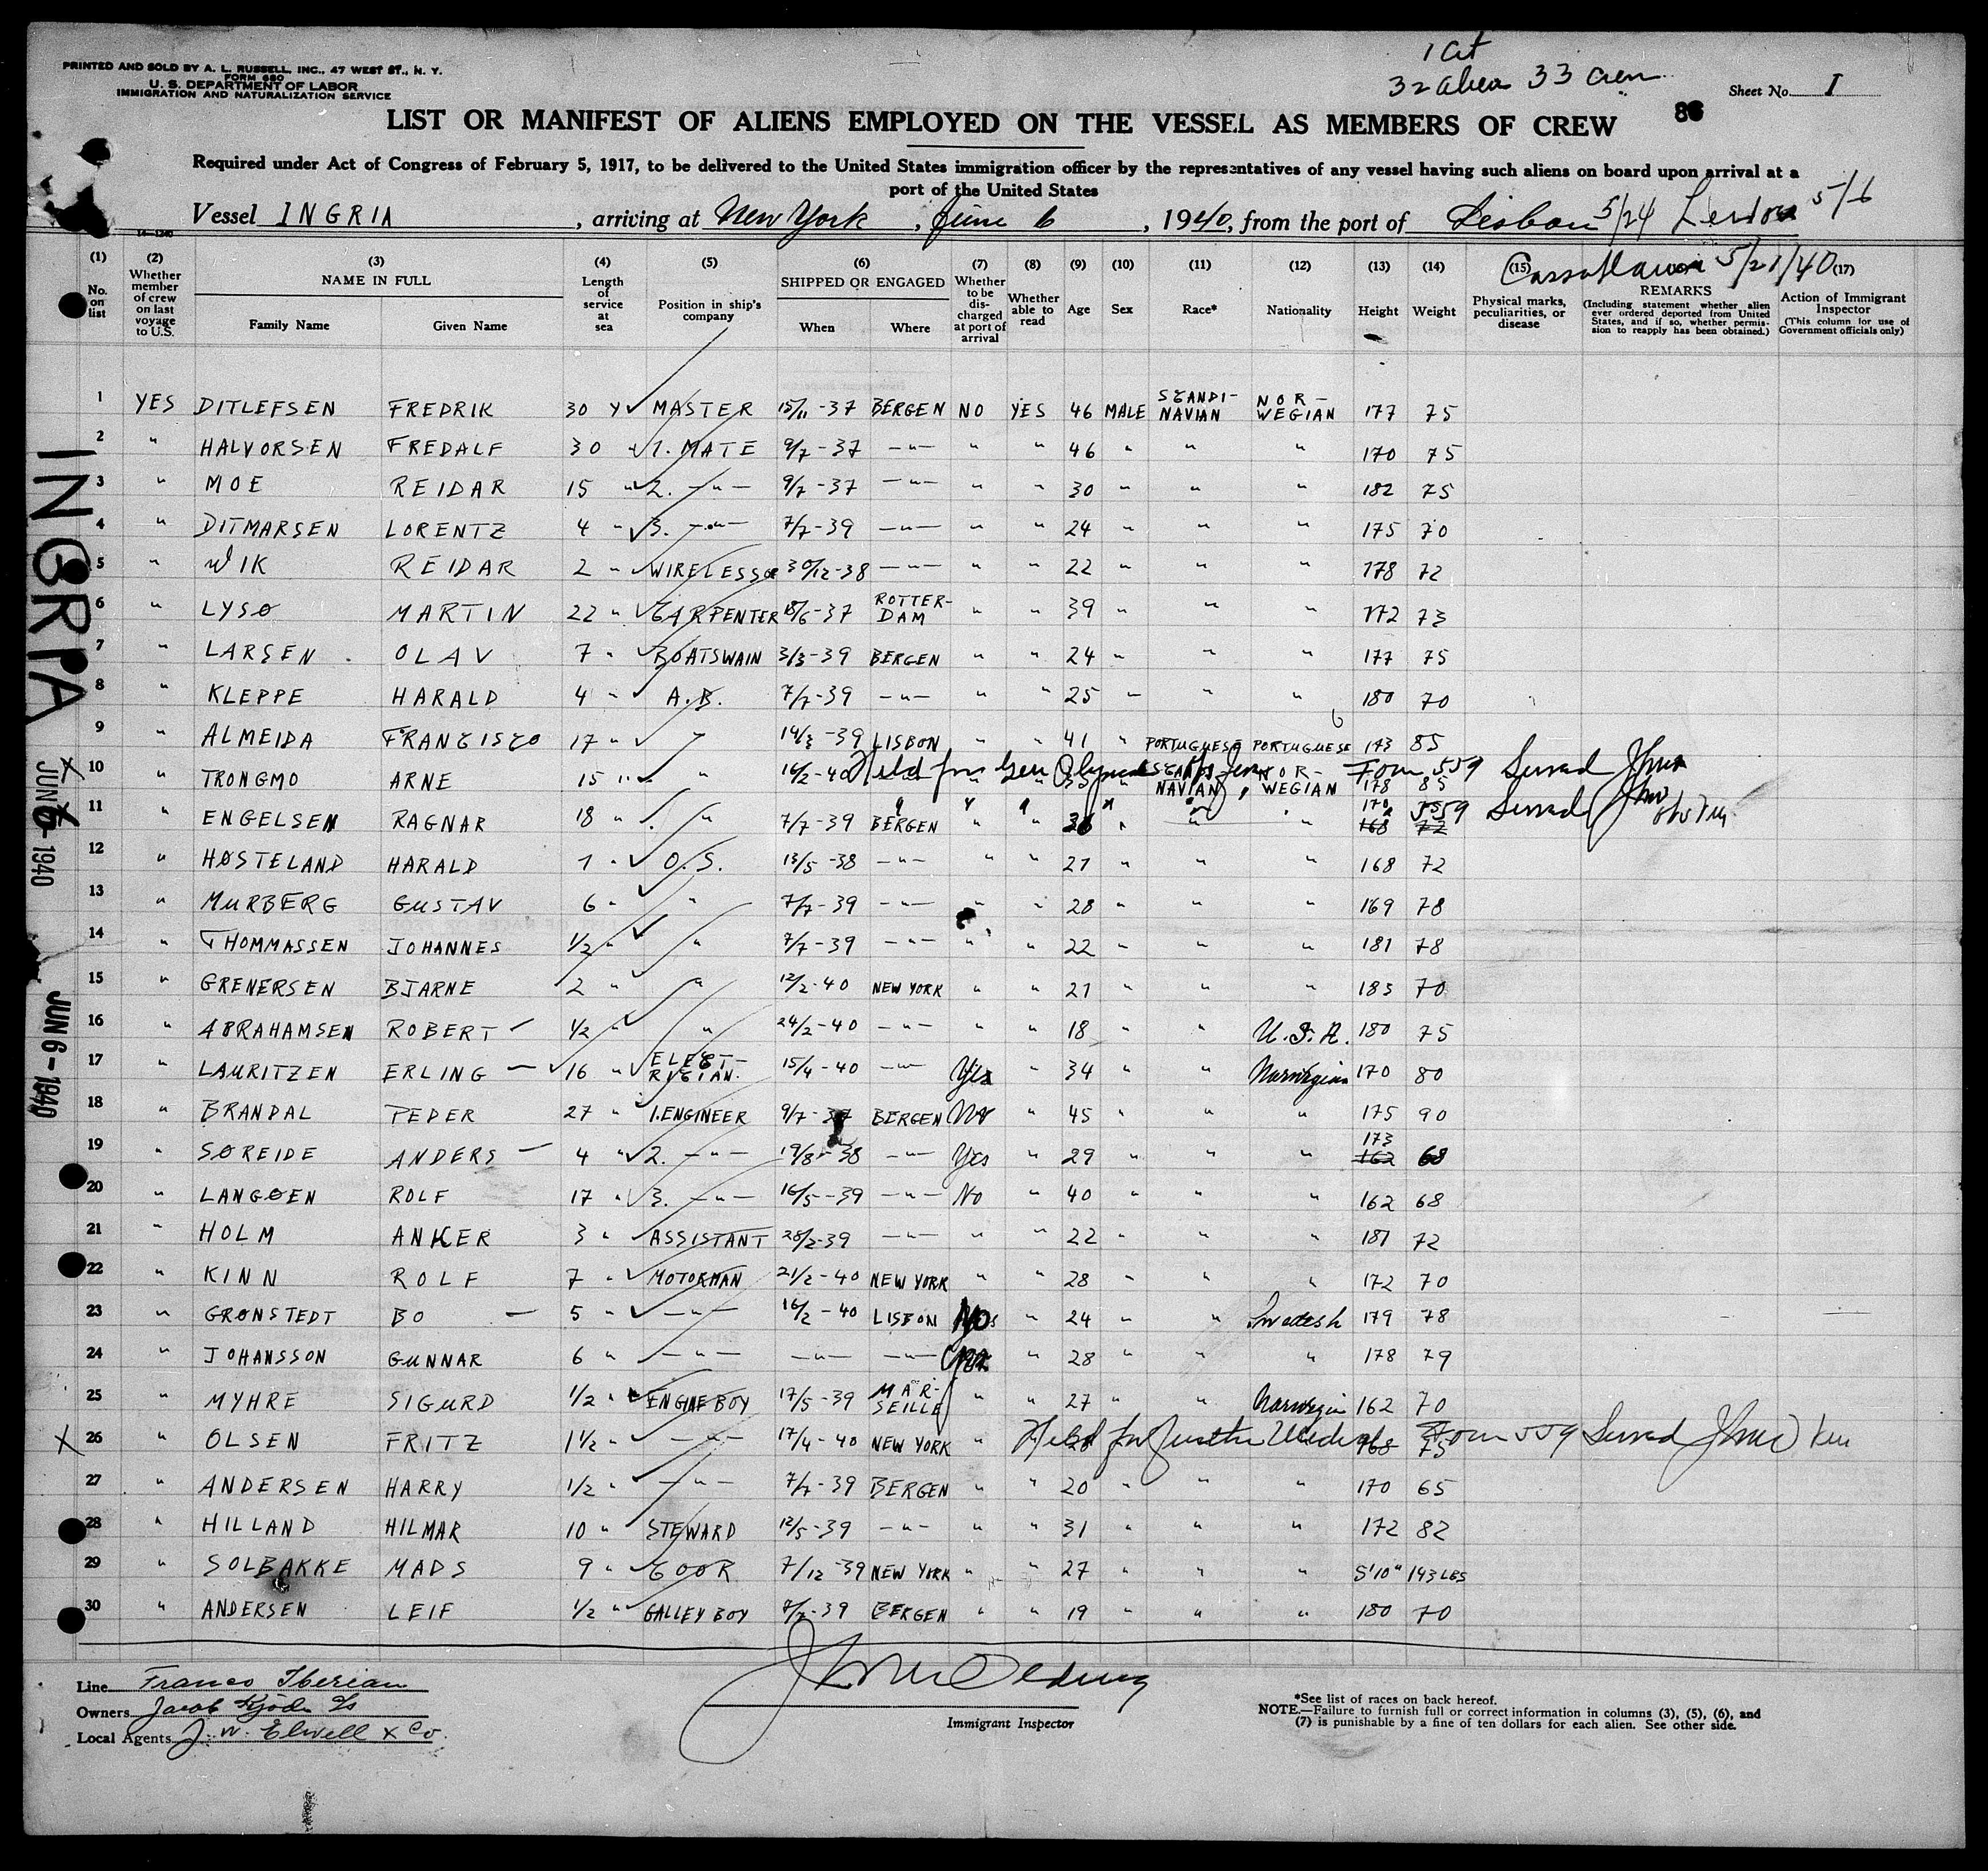 1 Cit
32 alien 33 crew
PRINTED AND SOLD BY A. L. RUSSELL, INC., 47 WEST ST., N. Y.
FORM 680
U. S. DEPARTMENT OF LABOR
IMMIGRATION AND NATURALIZATION SERVICE
Sheet No. I
86
LIST OR MANIFEST OF ALIENS EMPLOYED ON THE VESSEL AS MEMBERS OF CREW
Required under Act of Congress of February 5, 1917, to be delivered to the United States immigration officer by the representatives of any vessel having such aliens on board upon arrival at a
port of the United States
Vessel INGRIA, arriving at New York, June 6, 1940, from the port of Lisbon 5/24
5/21/40
14—1240
(1) No. on list
(2) Whether member of crew on last voyage to U.S.
(3) NAME IN FULL Family Name Given Name
(4) Length of service at sea
(5) Position in ship's company
(6) SHIPPED OR ENGAGED When Where
(7) Whether to be discharged at port of arrival
(8) Whether able to read
(9) Age
(10) Sex
(11) Race*
(12) Nationality
(13) Height
(14) Weight
(15) Physical marks, peculiarities, or disease
REMARKS (Including statement whether alien ever ordered deported from United States, and if so, whether permission to reapply has been obtained.)
(17) Action of Immigrant Inspector (This column for use of Government officials only)
1 YES DITLEFSEN FREDRIK 30 Y MASTER 15/11-37 BERGEN NO YES 46 MALE SCANDINAVIAN NORWEGIAN 177 75
2 " HALVORSEN FREDALF 30 " 1. MATE 9/7-37 —"— " " 46 " " " 170 75
3 " MOE REIDAR 15 " 2. —"— 9/7-37 —"— " " 30 " " " 182 75
4 " DITMARSEN LORENTZ 4 " 3. —"— 7/7-39 —"— " " 24 " " " 175 70
5 " WIK REIDAR 2 " WIRELESS 30/12-38 —"— " " 22 " " " 178 72
6 " LYSØ MARTIN 22 " CARPENTER 18/6-37 ROTTERDAM " " 39 " " " 172 73
7 " LARSEN OLAV 7 " BOATSWAIN 3/3-39 BERGEN " " 24 " " " 177 75
8 " KLEPPE HARALD 4 " A.B. 7/7-39 —"— " " 25 " " " 180 70
9 " ALMEIDA FRANCISCO 17 " " 14/3-39 LISBON " " 41 " PORTUGUESE PORTUGUESE 173 85
10 " TRONGMO ARNE 15 " " 16/2-40 Held for SCANDINAVIAN NORWEGIAN 178 85 Form 559 Served
11 " ENGELSEN RAGNAR 18 " " 7/7-39 BERGEN " " 36 " " " 170 168 72 559 Served
12 " HØSTELAND HARALD 1 " O.S. 13/5-38 —"— " " 21 " " " 168 72
13 " MURBERG GUSTAV 6 " " 7/7-39 —"— " " 28 " " " 169 78
14 " THOMMASSEN JOHANNES 1/2 " " 7/7-39 —"— " " 22 " " " 181 78
15 " GRENERSEN BJARNE 2 " " 12/2-40 NEW YORK " " 21 " " " 183 70
16 " ABRAHAMSEN ROBERT 1/2 " " 24/2-40 —"— " " 18 " " U.S.A. 180 75
17 " LAURITZEN ERLING 16 " ELECTRICIAN. 15/4-40 —"— Yes " 34 " " Norwegian 170 80
18 " BRANDAL PEDER 27 " 1. ENGINEER 9/7-37 BERGEN No " 45 " " " 175 90
19 " SØREIDE ANDERS 4 " 2. —"— 19/8-38 —"— Yes " 29 " " " 173 162 68
20 " LANGØEN ROLF 17 " 3. —"— 16/5-39 —"— No " 40 " " " 162 68
21 " HOLM ANKER 3 " ASSISTANT 28/2-39 —"— " " 22 " " " 181 72
22 " KINN ROLF 7 " MOTORMAN 21/2-40 NEW YORK " " 28 " " " 172 70
23 " GRØNSTEDT BO 5 " —"— 16/2-40 LISBON No " 24 " " Swedish 179 78
24 " JOHANSSON GUNNAR 6 " —"— —"— —"— " 28 " " " 178 79
25 " MYHRE SIGURD 1/2 " ENGINE BOY 17/5-39 MARSEILLE " " 27 " " Norwegian 162 70
26 " OLSEN FRITZ 1 1/2 " —"— 17/4-40 NEW YORK " Held for further Medical 168 75 Form 559 Served
27 " ANDERSEN HARRY 1/2 " —"— 7/7-39 BERGEN " " 20 " " " 170 65
28 " HILLAND HILMAR 10 " STEWARD 12/5-39 —"— " " 31 " " " 172 82
29 " SOLBAKKE MADS 9 " COOK 7/12-39 NEW YORK " " 27 " " " 5'10" 143 LBS
30 " ANDERSEN LEIF 1/2 " GALLEY BOY 7/7-39 BERGEN " " 19 " " " 180 70
INGRIA
JUN 6 - 1940
JUN 6 - 1940
Line Franco Iberian
Owners Jacob Kjöde A/S
Local Agents J. W. Elwell & Co.
Immigrant Inspector
*See list of races on back hereof.
NOTE.—Failure to furnish full or correct information in columns (3), (5), (6), and
(7) is punishable by a fine of ten dollars for each alien. See other side.